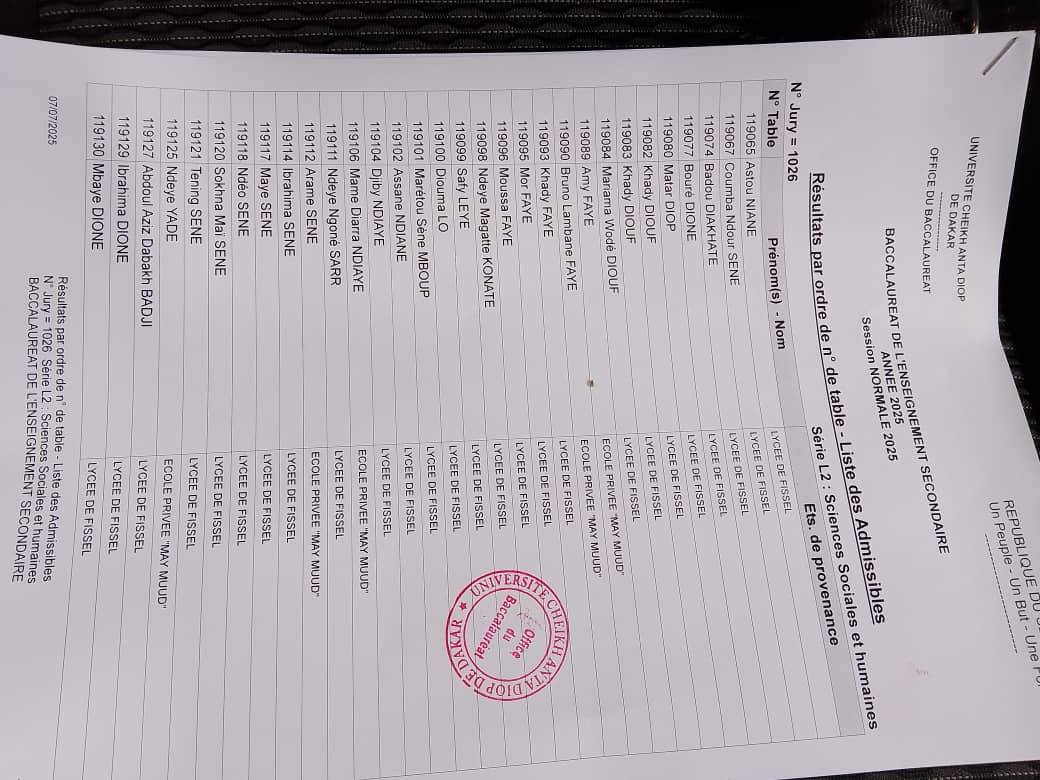 UNIVERSITE CHEIKH ANTA DIOP
DE DAKAR
OFFICE DU BACCALAUREAT
REPUBLIQUE DU
Un Peuple - Un But - Une
BACCALAUREAT DE L'ENSEIGNEMENT SECONDAIRE
ANNEE 2025
Session NORMALE 2025
Résultats par ordre de n° de table - Liste des Admissibles
Série L2 : Sciences Sociales et humaines
N° Jury = 1026
N° Table Prénom(s) - Nom Ets. de provenance
119065 Astou NIANE LYCEE DE FISSEL
119067 Coumba Ndour SENE LYCEE DE FISSEL
119074 Badou DIAKHATE LYCEE DE FISSEL
119077 Bouré DIONE LYCEE DE FISSEL
119080 Matar DIOP LYCEE DE FISSEL
119082 Khady DIOUF LYCEE DE FISSEL
119083 Khady DIOUF LYCEE DE FISSEL
119084 Mariama Wodé DIOUF LYCEE DE FISSEL
119089 Amy FAYE ECOLE PRIVEE "MAY MUUD"
119090 Bruno Lambane FAYE ECOLE PRIVEE "MAY MUUD"
119093 Khady FAYE LYCEE DE FISSEL
119095 Mor FAYE LYCEE DE FISSEL
119096 Moussa FAYE LYCEE DE FISSEL
119098 Ndeye Magatte KONATE LYCEE DE FISSEL
119099 Safy LEYE LYCEE DE FISSEL
119100 Diouma LO LYCEE DE FISSEL
119101 Marétou Sène MBOUP LYCEE DE FISSEL
119102 Assane NDIANE LYCEE DE FISSEL
119104 Djiby NDIAYE LYCEE DE FISSEL
119106 Mame Diarra NDIAYE ECOLE PRIVEE "MAY MUUD"
119111 Ndeye Ngoné SARR LYCEE DE FISSEL
119112 Arame SENE ECOLE PRIVEE "MAY MUUD"
119114 Ibrahima SENE LYCEE DE FISSEL
119117 Maye SENE LYCEE DE FISSEL
119118 Ndéo SENE LYCEE DE FISSEL
119120 Sokhna Mai SENE LYCEE DE FISSEL
119121 Tening SENE LYCEE DE FISSEL
119125 Ndeye YADE ECOLE PRIVEE "MAY MUUD"
119127 Abdoul Aziz Dabakh BADJI LYCEE DE FISSEL
119129 Ibrahima DIONE LYCEE DE FISSEL
119130 Mbaye DIONE LYCEE DE FISSEL
UNIVERSITE CHEIKH ANTA DIOP DE DAKAR
Office
du
Baccalauréat
07/07/2025
Résultats par ordre de n° de table - Liste des Admissibles
N° Jury = 1026 Série L2 : Sciences Sociales et humaines
BACCALAUREAT DE L'ENSEIGNEMENT SECONDAIRE